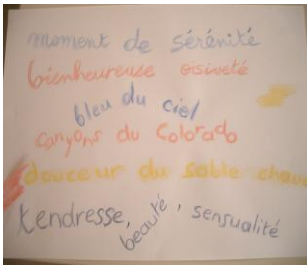 moment de sérénité
bienheureuse oisiveté
bleu du ciel
canyons du Colorado
douceur du sable chaud
tendresse, beauté, sensualité